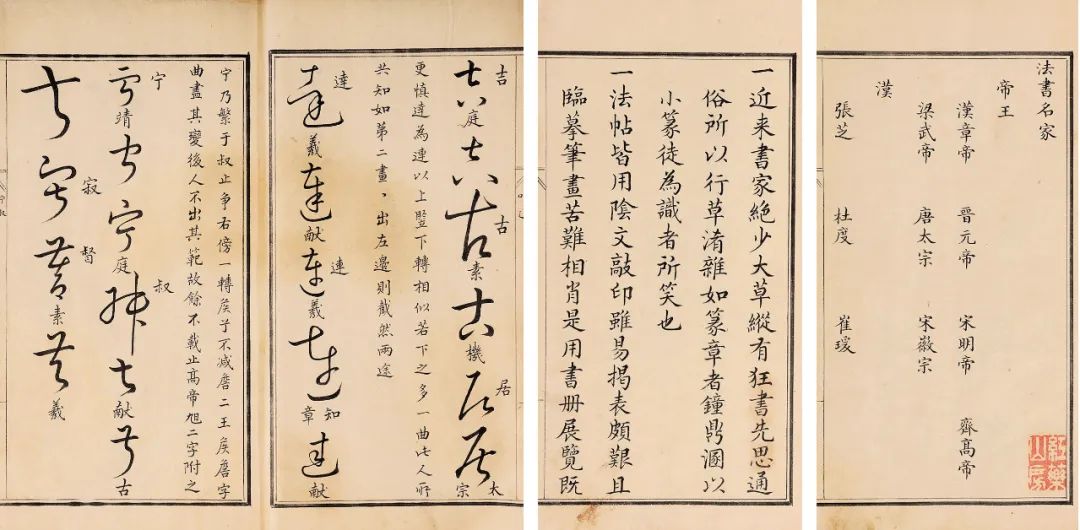 法書名家
帝王
漢章帝 晉元帝 宋明帝 齊高帝
梁武帝 唐太宗 宋徽宗
漢
張芝 杜度 崔瑗
紅藥山房
一近来書家絶少大草縱有狂書先思通
俗所以行草淆雜如篆章者鐘鼎溷以
小篆徒為識者所笑也
一法帖皆用陰文敲印雖易揭表頗艱且
臨摹筆畫苦難相肖是用書册展覽既
吉 庭 古 素 機 居 太宗
更慎達為連以上豎下轉相似若下之多一曲此人所
共知如第二畫丶出左邊則截然兩途
達 羲 献 連 羲 知章 献
宁乃繁于叔止争右傍一轉 不减 二王 字
曲盡其變後人不出其範故餘不載止高帝旭二字附之
宁 靖 庭 叔 献 古
寂 督 素 羲